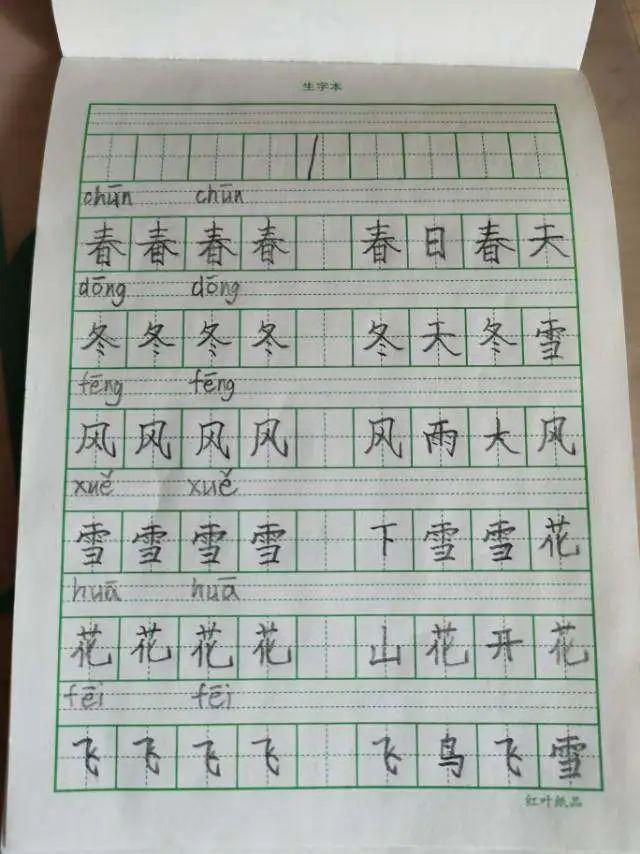 生字本
/
chūn chūn
春春春春 春日春天
dōng dōng
冬冬冬冬 冬天冬雪
fēng fēng
风风风风 风雨大风
xuě xuě
雪雪雪雪 下雪雪花
huā huā
花花花花 山花开花
fēi fēi
飞飞飞飞 飞鸟飞雪
红叶纸品